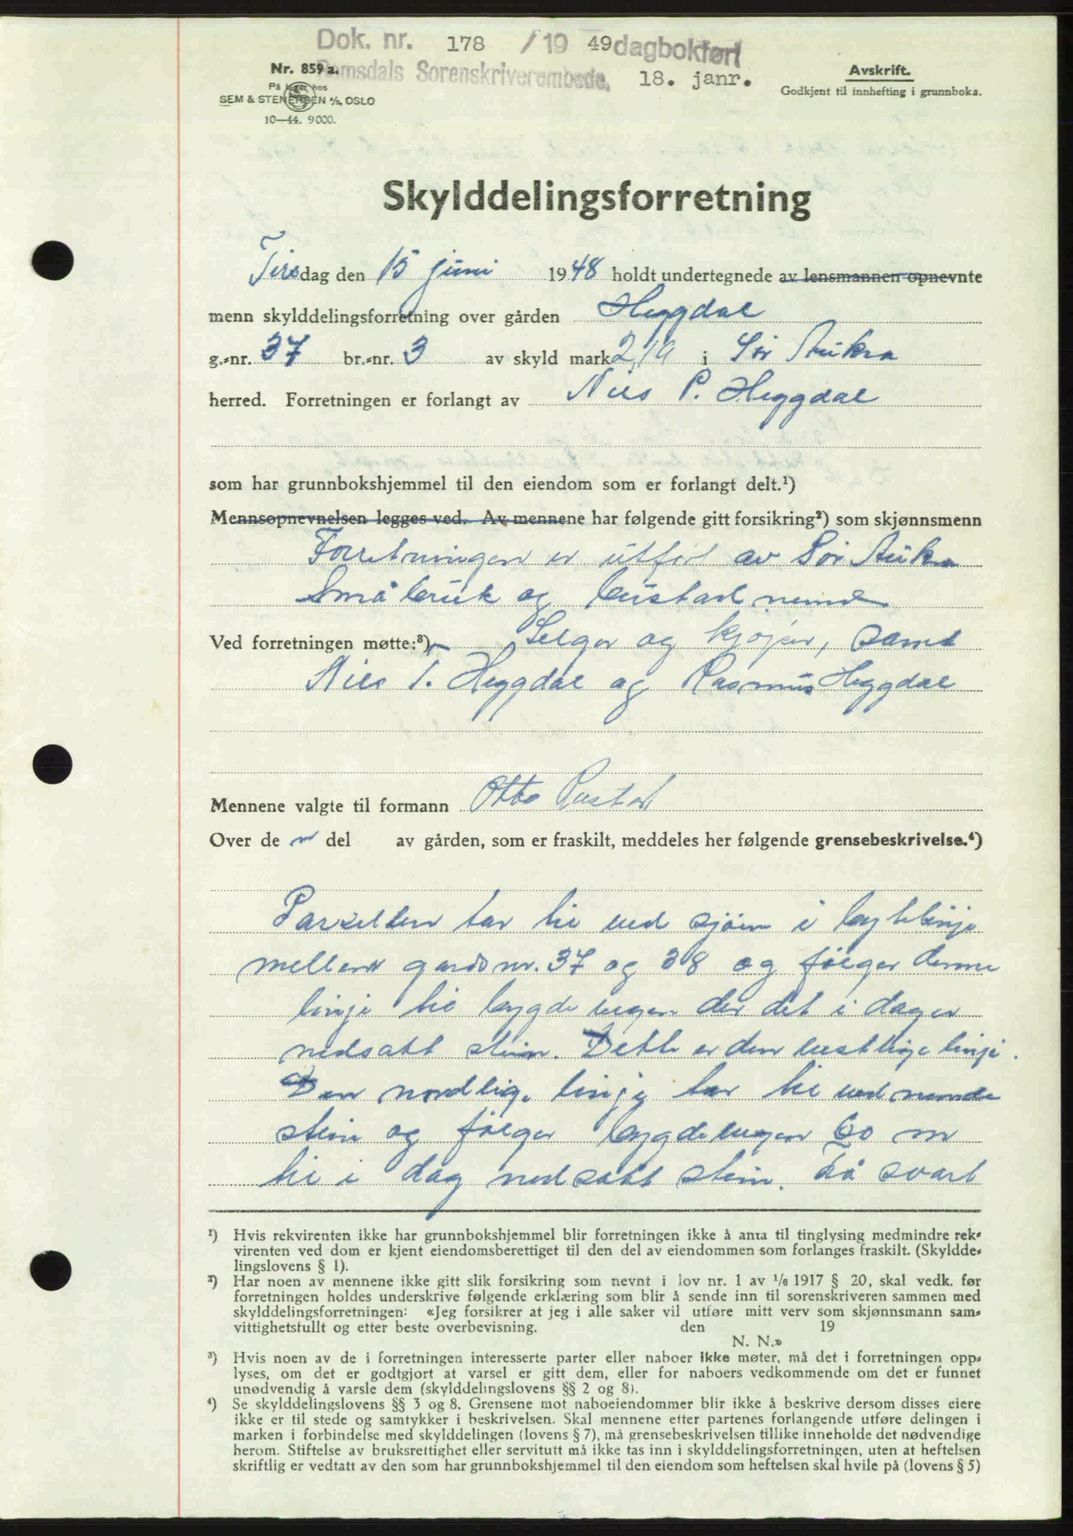 Dok. nr. 178 / 19 49 dagbokført
Nr. 859 a. Romsdals Sorenskriverembede. 18. janr. Avskrift.
På lager hos Godkjent til innhefting i grunnboka.
SEM & STENERSEN A/S, OSLO
10—44. 9000.
Skylddelingsforretning
Tirsdag den 15 juni 1948 holdt undertegnede av lensmannen opnevnte
menn skylddelingsforretning over gården Heggdal
g.-nr. 37 br.-nr. 3 av skyld mark 2,19 i Sør Aukra
herred. Forretningen er forlangt av Nils P. Heggdal
som har grunnbokshjemmel til den eiendom som er forlangt delt.¹)
Mennsopnevnelsen legges ved. Av mennene har følgende gitt forsikring²) som skjønnsmenn
Forretningen er utført av Sør Aukra
Småbruk og bustad nemd
Ved forretningen møtte:³) Selger og kjøper, samt
Nils T. Heggdal og Rasmus Heggdal
Mennene valgte til formann Otto
Over de n del av gården, som er fraskilt, meddeles her følgende grensebeskrivelse.⁴)
Parzellen tar til ved sjøen i bytelinje
mellem gards nr. 37 og 38 og følger denne
linje til bygdevegen der det i dag er
nedsatt stein. Dette er den vestlige linje.
Den nordlige linje tar til ved nemde
stein og følger bygdevegen 60 m
til i dag nedsatt stein. Så svart
¹) Hvis rekvirenten ikke har grunnbokshjemmel blir forretningen ikke å anta til tinglysing medmindre rek-
virenten ved dom er kjent eiendomsberettiget til den del av eiendommen som forlanges fraskilt. (Skyldde-
lingslovens § 1).
²) Har noen av mennene ikke gitt slik forsikring som nevnt i lov nr. 1 av 1/6 1917 § 20, skal vedk. før
forretningen holdes underskrive følgende erklæring som blir å sende inn til sorenskriveren sammen med
skylddelingsforretningen: «Jeg forsikrer at jeg i alle saker vil utføre mitt verv som skjønnsmann sam-
vittighetsfullt og etter beste overbevisning. den 19
N. N.»
³) Hvis noen av de i forretningen interesserte parter eller naboer ikke møter, må det i forretningen opp-
lyses, om det er godtgjort at varsel er gitt dem, eller for naboers vedkommende om det er funnet
unødvendig å varsle dem (skylddelingslovens §§ 2 og 8).
⁴) Se skylddelingslovens §§ 3 og 8. Grensene mot naboeiendommer blir ikke å beskrive dersom disses eiere
ikke er til stede og samtykker i beskrivelsen. Skal mennene etter partenes forlangende utføre delingen i
marken i forbindelse med skylddelingen (lovens § 7), må grensebeskrivelsen tillike inneholde det nødvendige
herom. Stiftelse av bruksrettighet eller servitutt må ikke tas inn i skylddelingsforretningen, uten at heftelsen
skriftlig er vedtatt av den som har grunnbokshjemmel til den eiendom som heftelsen skal hvile på (lovens § 5)